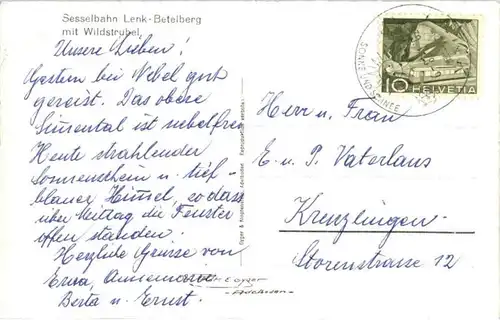 Sesselbahn Lenk-Betelberg
mit Wildstrubel
Unsere Lieben!
Gestern bei Nebel gut
gereist. Das obere
Simmental ist nebelfrei
Heute strahlender
Sonnenschein u. tief-
blauer Himmel, so dass
über Mittag die Fenster
offen standen.
Herzliche Grüsse von
Erna, Annemarie
Berta u. Ernst.
10
HELVETIA
Herr u. Frau
E. u. P. Vaterlaus
Kreuzlingen
Storenstrasse 12